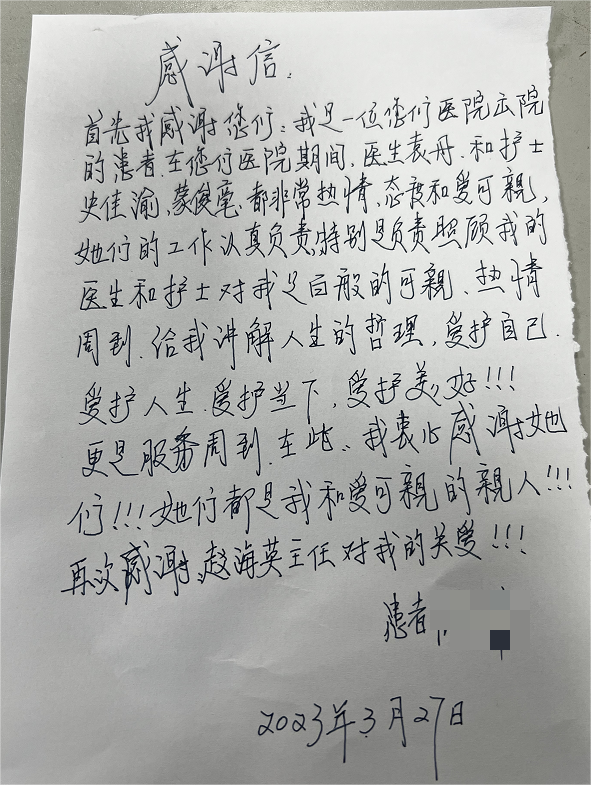 感谢信:
首先我感谢您们:我是一位您们医院出院
的患者.在您们医院期间,医生袁丹.和护士
史佳渝,蒙俊毫,都非常热情,态度和爱可親,
她们的工作认真负责,特别是负责照顾我的
医生和护士对我是百般的可親、热情
周到.给我讲解人生的哲理,爱护自己.
爱护人生.爱护当下,爱护美好!!!
更是服务周到.在此、我衷心感谢她
们!!!她们都是我和爱可親的親人!!!
再次感谢,赵海英主任对我的关爱!!!
患者
2023年3月27日